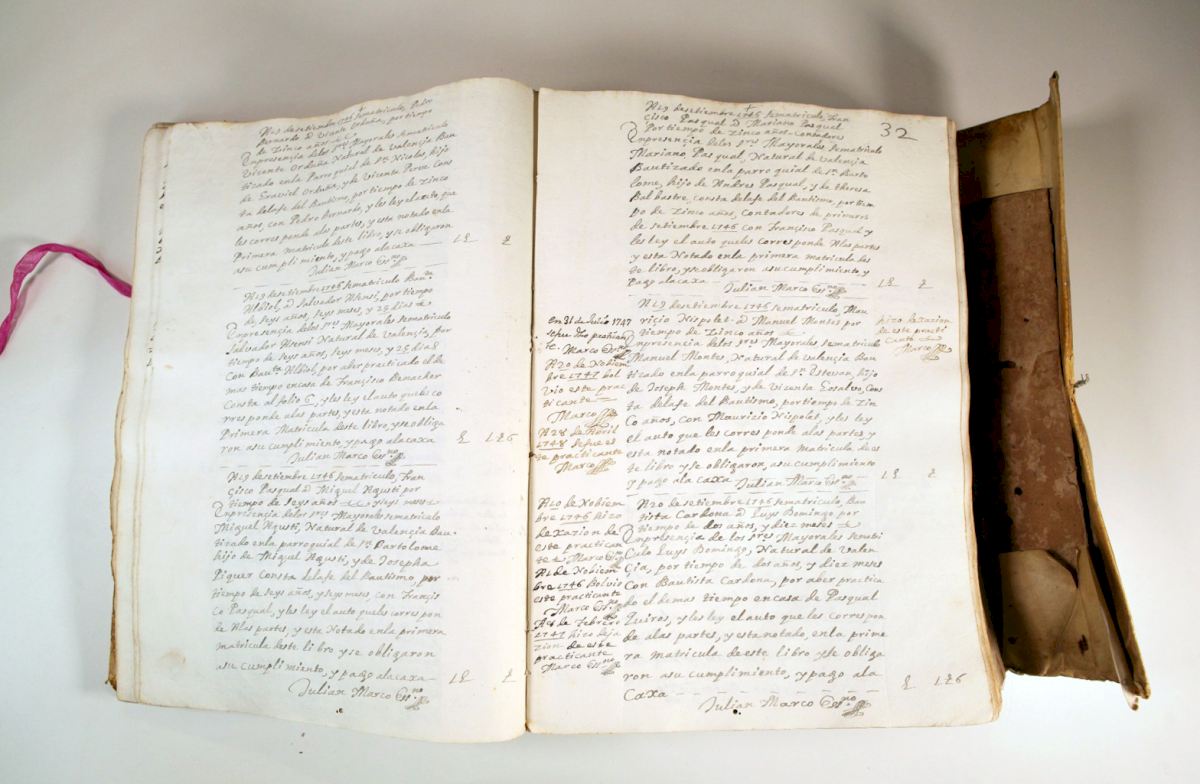 A 19 de setiembre 1746 sematriculo, Pedro
Bernardo â Vicente Orduña, por tiempo
de Zinco años
Enpresençia delos Srs Mayorales sematriculo
Vicente Orduña Natural de Valençia Bau
tizado enla Parroquial de Sn Nicolas, hijo
de y de Vicenta Perez Cons
ta delafe del Bautismo, por tiempo de Zinco
años, con Pedro Bernardo, y les ley el auto que
les corresponde alas partes, y esta notado enla
Primera matricula deste libro, y se obligaron
asu cumplimiento y pago ala caxa
Julian Marco Essno
A 19 de setiembre 1746 sematriculo Bauta
Albiol, â Salvador Asensi, por tiempo
de seys años, seys meses, y 25 dias
Enpresençia delos Srs Mayorales sematriculo
Salvador Asensi Natural de Valençia, Por
tiempo de seys años, seys meses, y 25 dias
Con Bauta Albiol, por aber practicado el de
mas tiempo encasa de Françisco Benacker
Consta al folio 6, y les ley el auto queles co
rresponde alas partes, y esta notado enla
Primera Matricula deste libro, y se obliga
ron asu cumplimiento y pago ala caxa
Julian Marco Essno
A 19 de setiembre 1746 sematriculo, Fran
çisco Pasqual â Miguel Agusti por
tiempo de seys años y seys meses
Enpresençia delos Srs Mayorales sematriculo
Miguel Agusti, Natural de Valençia Bau
tizado enla parroquial de Sn Bartolome
hijo de Miguel Agusti, y de Josepha
Piquer Consta delafe del Bautismo, por
tiempo de seys años, y seys meses con Françis
co Pasqual, y les ley el auto queles corespon
de Alas partes, y esta Notado enla primera
matricula deste libro y se obligaron
asu cumplimiento, y pago ala caxa
Julian Marco Essno
32
A 19 de setiembre 1746 sematriculo, Fran
çisco Pasqual â Mariano Pasqual
Por tiempo de Zinco años Contadores
Enpresençia delos Srs Mayorales sematriculo
Mariano Pasqual, Natural de Valençia
Bautizado enla parroquial de Sn Barto
lome, hijo de Andres Pasqual, y de theresa
Balbastre, consta delafe del Bautismo, por tiem
po de Zinco años, Contadores de primeros
de setiembre 1746 con Françisco Pasqual y
les ley el auto queles corresponde Alas partes
y esta Notado enla primera matricula des
te libro, y se obligaron asu cumplimiento, y
Pago ala caxa
Julian Marco Essno
A 19 de setiembre 1746 sematriculo, Mau
ricio Nispolet â Manuel Montes por
tiempo de Zinco años
Enpresencia delos Srs Mayorales sematriculo
Manuel Montes, Natural de Valençia Bau
tizado enla parroquial de Sn Estevan, hijo
de Joseph Montes, y de Vicenta Gosalvo, Cons
ta delafe del Bautismo, por tiempo de Zin
co años, con Mauricio Nispolet, y les ley
el auto que les corresponde alas partes y
esta notado enla primera matricula de es
te libro y se obligaron, asu cumplimiento
y pago ala caxa Julian Marco Essno
En 31 de Julio 1747
Marco Essno
A 20 de Nobiem
bre 1747 bol
vio este prac
ticante
Marco
A 28 de Abril
1748 se fue es
te practicante
Marco
hizo dexazion
de este practi
cante
Marco
A 20 de setiembre 1746 sematriculo, Bau
tista Cardona â Luys Domingo, por
tiempo de dos años, y diez meses
Enpresençia de los Srs Mayorales sematri
culo Luys Domingo, Natural de Valen
çia, por tiempo de dos años, y diez meses
Con Bautista Cardona, por aber practica
do el demas tiempo encasa de Pasqual
Zuiros, y les ley el auto que les correspon
de alas partes, y esta notado, en la prime
ra matricula de este libro y se obliga
ron asu cumplimiento, y pago ala
Caxa
Julian Marco Essno
A 10 de Nobiem
bre 1746 hizo
dexazion de
este practican
te Marco Essno
A 21 de Nobiem
bre 1746 bolvio
este practicante
Marco Essno
A 1 de Febrero
1747 hizo deja
zion de este
practicante
Marco Essno